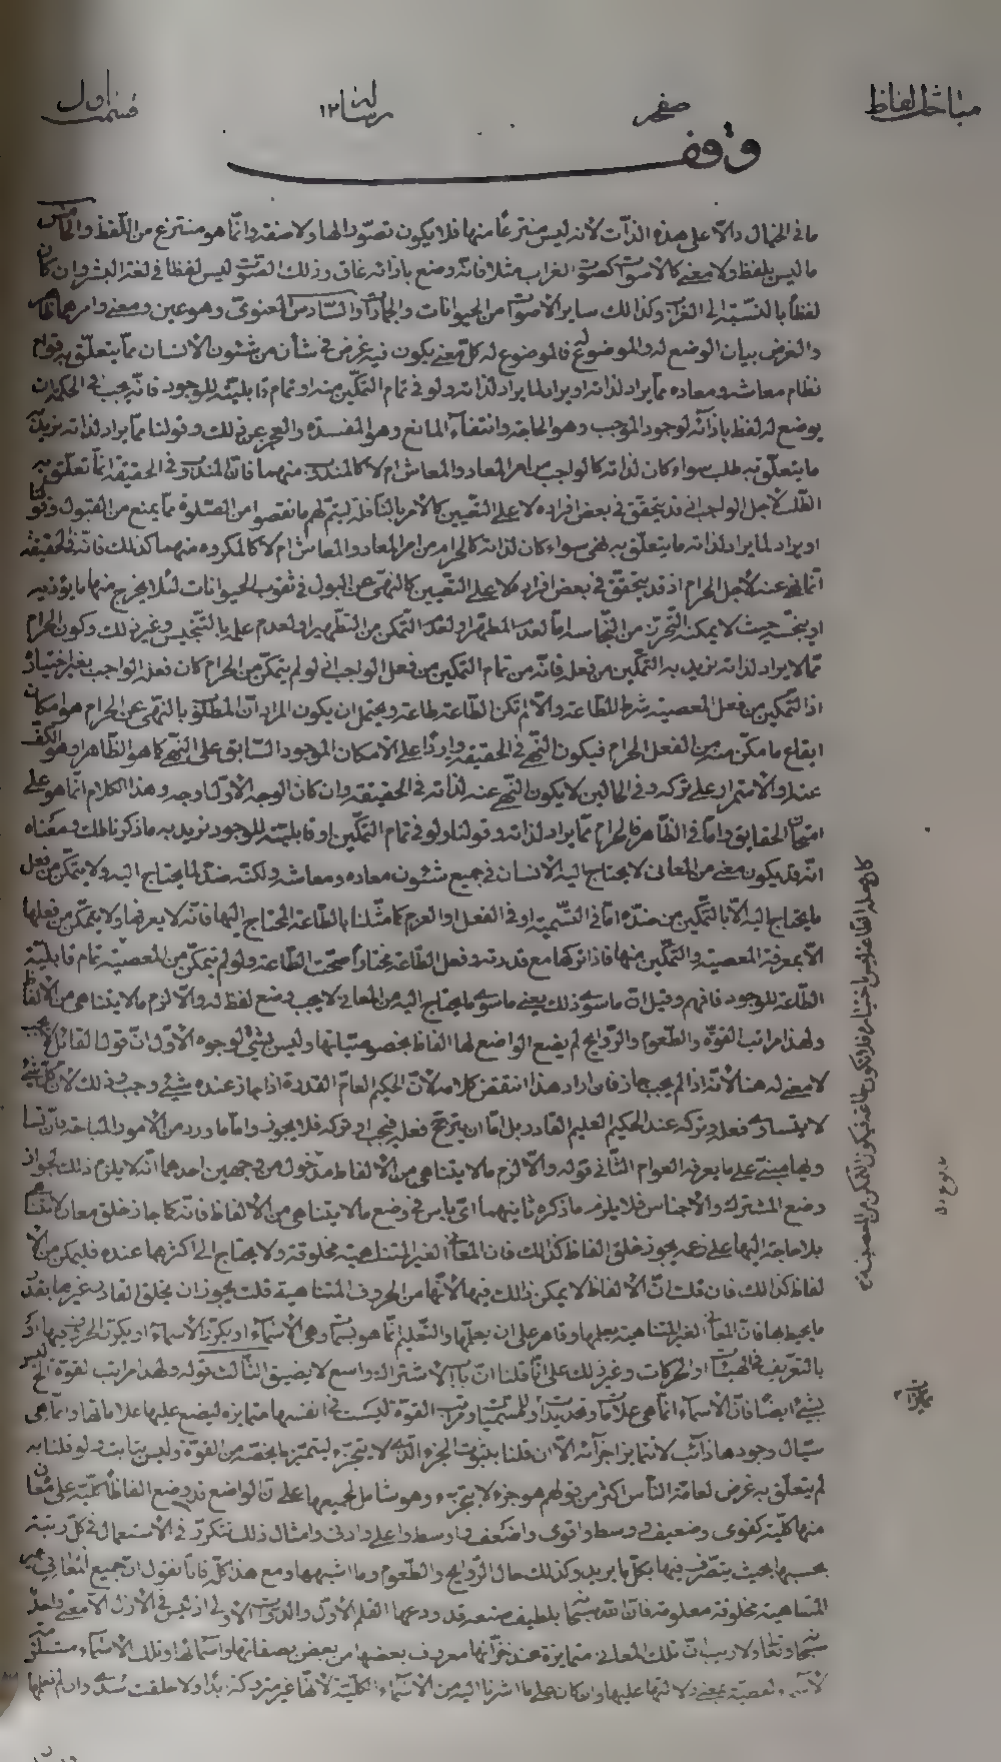 مباحث الفاظ
صفحه
رساله ١٢
قسمت اول
وقف
ما فى الخيال دالّا على هذه الذات لانه ليس منتزعًا منها فلا يكون تصوّرا لها ولا صفة وانّما هو منتزع من اللّفظ والخامس
ما ليس بلفظ ولا معنى كالاصوات كصوت الغراب مثلا فانّه وضع بازائه غاق وذلك الصّوت ليس لفظا فى لغة البشر وان كان
لفظاً بالنّسبة الى الغراب وكذلك ساير الاصوات من الحيوانات والجمادات والسّادس المعنوىّ وهو عين ومعنى وامرهما ظاهر
والغرض بيان الوضع له والموضوع له فالموضوع له كلّ معنى يكون فيه غرض فى شأن من شئون الانسان ممّا يتعلّق به قوام
نظام معاشه ومعاده ممّا يراد لذاته او يراد لما يراد لذاته ولو فى تمام التمكّين منه او تمام قابليّته للوجود فانّه يجب فى الحكمة ان
يوضع له لفظ بازائه لوجود الموجب وهو الحاجة وانتفاء المانع وهو المفسدة والعجز عن ذلك وقولنا ممّا يراد لذاته نريد به
ما يتعلّق به طلب سواء كان لذاته كالواجب من امر المعاد والمعاش ام لا كالمندوب منهما فانّ المندوب فى الحقيقة انّما تعلّق به
الطّلب لاجل الواجب اذ قد يتحقّق فى بعض افراده لا على التّعيين كالامر بالنّافلة ليتمّ لهم ما نقصوا من الصّلوة ممّا يمنع من القبول وقولنا
او يراد لما يراد لذاته ما يتعلّق به نهى سواء كان لذاته كالحرام من امر المعاد والمعاش ام لا كالمكروه منهما كذلك فانّه فى الحقيقة
انّما نهى عنه لاجل الحرام اذ قد يتحقّق فى بعض افراده لا على التّعيين كالنّهى عن البول فى ثقوب الحيوانات لئلا يخرج منها ما يؤذيه
او ينجّسه حيث لا يمكنه التّحرّز من النّجاسة امّا لفقد المطهّر او لفقد التمكّن من التّطهير او لعدم علمه بالتّنجيس وغير ذلك وكون الحرام
ممّا لا يراد لذاته نريد به التّمكين من فعله فانّه من تمام التمكين من فعل الواجب اذ لو لم يتمكّن من الحرام كان فعله الواجب بغير اختياره
اذ التّمكين من فعل المعصية شرط للطّاعة والّا لم تكن الطّاعة طاعة ويحتمل ان يكون المراد انّ المطلوب بالنّهى عن الحرام هو امكان
ايقاع ما مكّن منه من الفعل الحرام فيكون النّهى فى الحقيقة وارداً على الامكان الموجود السّابق على النّهى كما هو الظّاهر وهو الكفّ
عنه او الاستمرار على تركه وفى الحالين لا يكون النّهى عنه لذاته فى الحقيقة وان كان الوجه الاوّل اوجه وهذا الكلام انّما هو على
امتحان الحقايق وامّا فى الظّاهر فالحرام ممّا يراد لذاته وقولنا ولو فى تمام التمكّين او قابليّته للوجود نريد به ما ذكرنا لك ومعناه
انّه قد يكون معنى من المعانى لا يحتاج اليه الانسان فى جميع شئون معاده ومعاشه ولكنّه ضدّ لما يحتاج اليه ولا يتمكّن من فعل
ما يحتاج اليه الّا بالتّمكين من ضدّه امّا فى التّسمية او فى الفعل او العزم كما مثّلنا بالطّاعة المحتاج اليها فانّه لا يعرفها ولا يتمكّن من فعلها
الّا بمعرفة المعصية والتّمكّين منها فاذا تركها مع قدرته وفعل الطّاعة مختاراً صحّت الطّاعة ولو لم يتمكّن من المعصية تمام قابليّة
الطّاعة للوجود فافهم وقيل انّ ما سوى ذلك يعنى ما سوى ما يحتاج اليه من المعانى لا يجب وضع لفظ له والّا لزم ما لا يتناهى من الالفاظ
ولهذا مراتب القوّة والطّعوم والرّوايح لم يضع الواضع لها الفاظا بخصوصيّاتها وليس بشئ لوجوه الاوّل انّ قولنا لقائل لا يجب
لا معنى له هنا لانّه اذا لم يجب جاز فان اراد هذا انتقض كلامه لانّ الحكيم العامّ القدرة اذا جاز عنده شئ وجب وذلك لانّ كلّ شئ
لا يتساوى فعله وتركه عند الحكيم العليم القادر بل امّا ان يترجّح فعله فيجب او تركه فلا يجوز وامّا ما ورد من الامور المباحة بان تسا
ويها مبنىّ على ما يعرفه العوام الثّانى قوله والّا لزم ما لا يتناهى من الالفاظ مدخول من وجهين احدهما انّه لا يلزم ذلك لجواز
وضع المشترك والاجناس فلا يلزم ما ذكره ثانيهما اىّ باس فى وضع ما لا يتناهى من الالفاظ فانّه كما جاز خلق معان لا تتناهى
بلا حاجة اليها على زعمه يجوز خلق الفاظ كذلك فان المعانى الغير المتناهية مخلوقة ولا يحتاج الى اكثرها عنده فليكن من الا
لفاظ كذلك فان قلت انّ الالفاظ لا يمكن ذلك فيها لانّها من الحروف المتناهية قلت يجوز ان يخلق القادر غيرها بقدر
ما يحيط بها فانّ المعانى الغير المتناهية يعلمها وقادر على ان يعلّمها والتّعليم انّما هو بسماء وهى الاسماء او يكرّر الاسماء او يكرّر الحروف فيها اذ
بالتعريف فى الهيئات او الحركات وغير ذلك على انّا قلنا انّ باب الاشتراك واسع لا يضيق الثّالث قوله ولهذا مراتب القوّة الخ ليس
بشئ ايضًا فانّ الاسماء انّما هى علامات وتحديدات للمسمّيات ومراتب القوة ليست فى انفسها متمايزة ليضع عليها علاماتها وانّما هى
سيّال وجودها ذائب لا تتمايز اجزائه الّا ان قلنا بثبوت الجزء الّذى لا يتجزّء ليتميّز ما يخصّه من القوّة وليس بثابت ولو قلنا به
لم يتعلّق به غرض لعامّة النّاس اكثر من قولهم هو جزء لا يتجزّء وهو شامل لجميعها على انّ الواضع قد وضع الفاظاً كليّة على معان
منها كليّة كقوى وضعيف و وسط واقوى واضعف واوسط واعلى وادنى وامثال ذلك تتكرّر فى الاستعمال فى كلّ رتبة
بحسبها بحيث يتصرّف فيها بكلّ ما يريد وكذلك حال الرّوايح والطّعوم وما اشبهها ومع هذا كلّه فانّا نقول انّ جميع المعانى الغير
المتناهية مخلوقة معلومة فانّ الله سبحانه بلطيف صنعه قد ودعها القلم الاوّل والدّوات الاولى اذ ليس فى الازل الّا معنى واحد
سبحانه وتعالى ولا ريب انّ تلك المعانى متمايزة عند خزّانها معروف بعضها من بعض بصفاتها واسمائها وتلك الاسماء
وان كان على ما اشرنا اليه من الاسماء الكلّيّة لانّها غير متروكة بدًا ولا خلقت سُدى وان لم نعلمها
كان فعله الطاعة ليس باختياره فلا تكون طاعة فيكون التمكن من المعصية